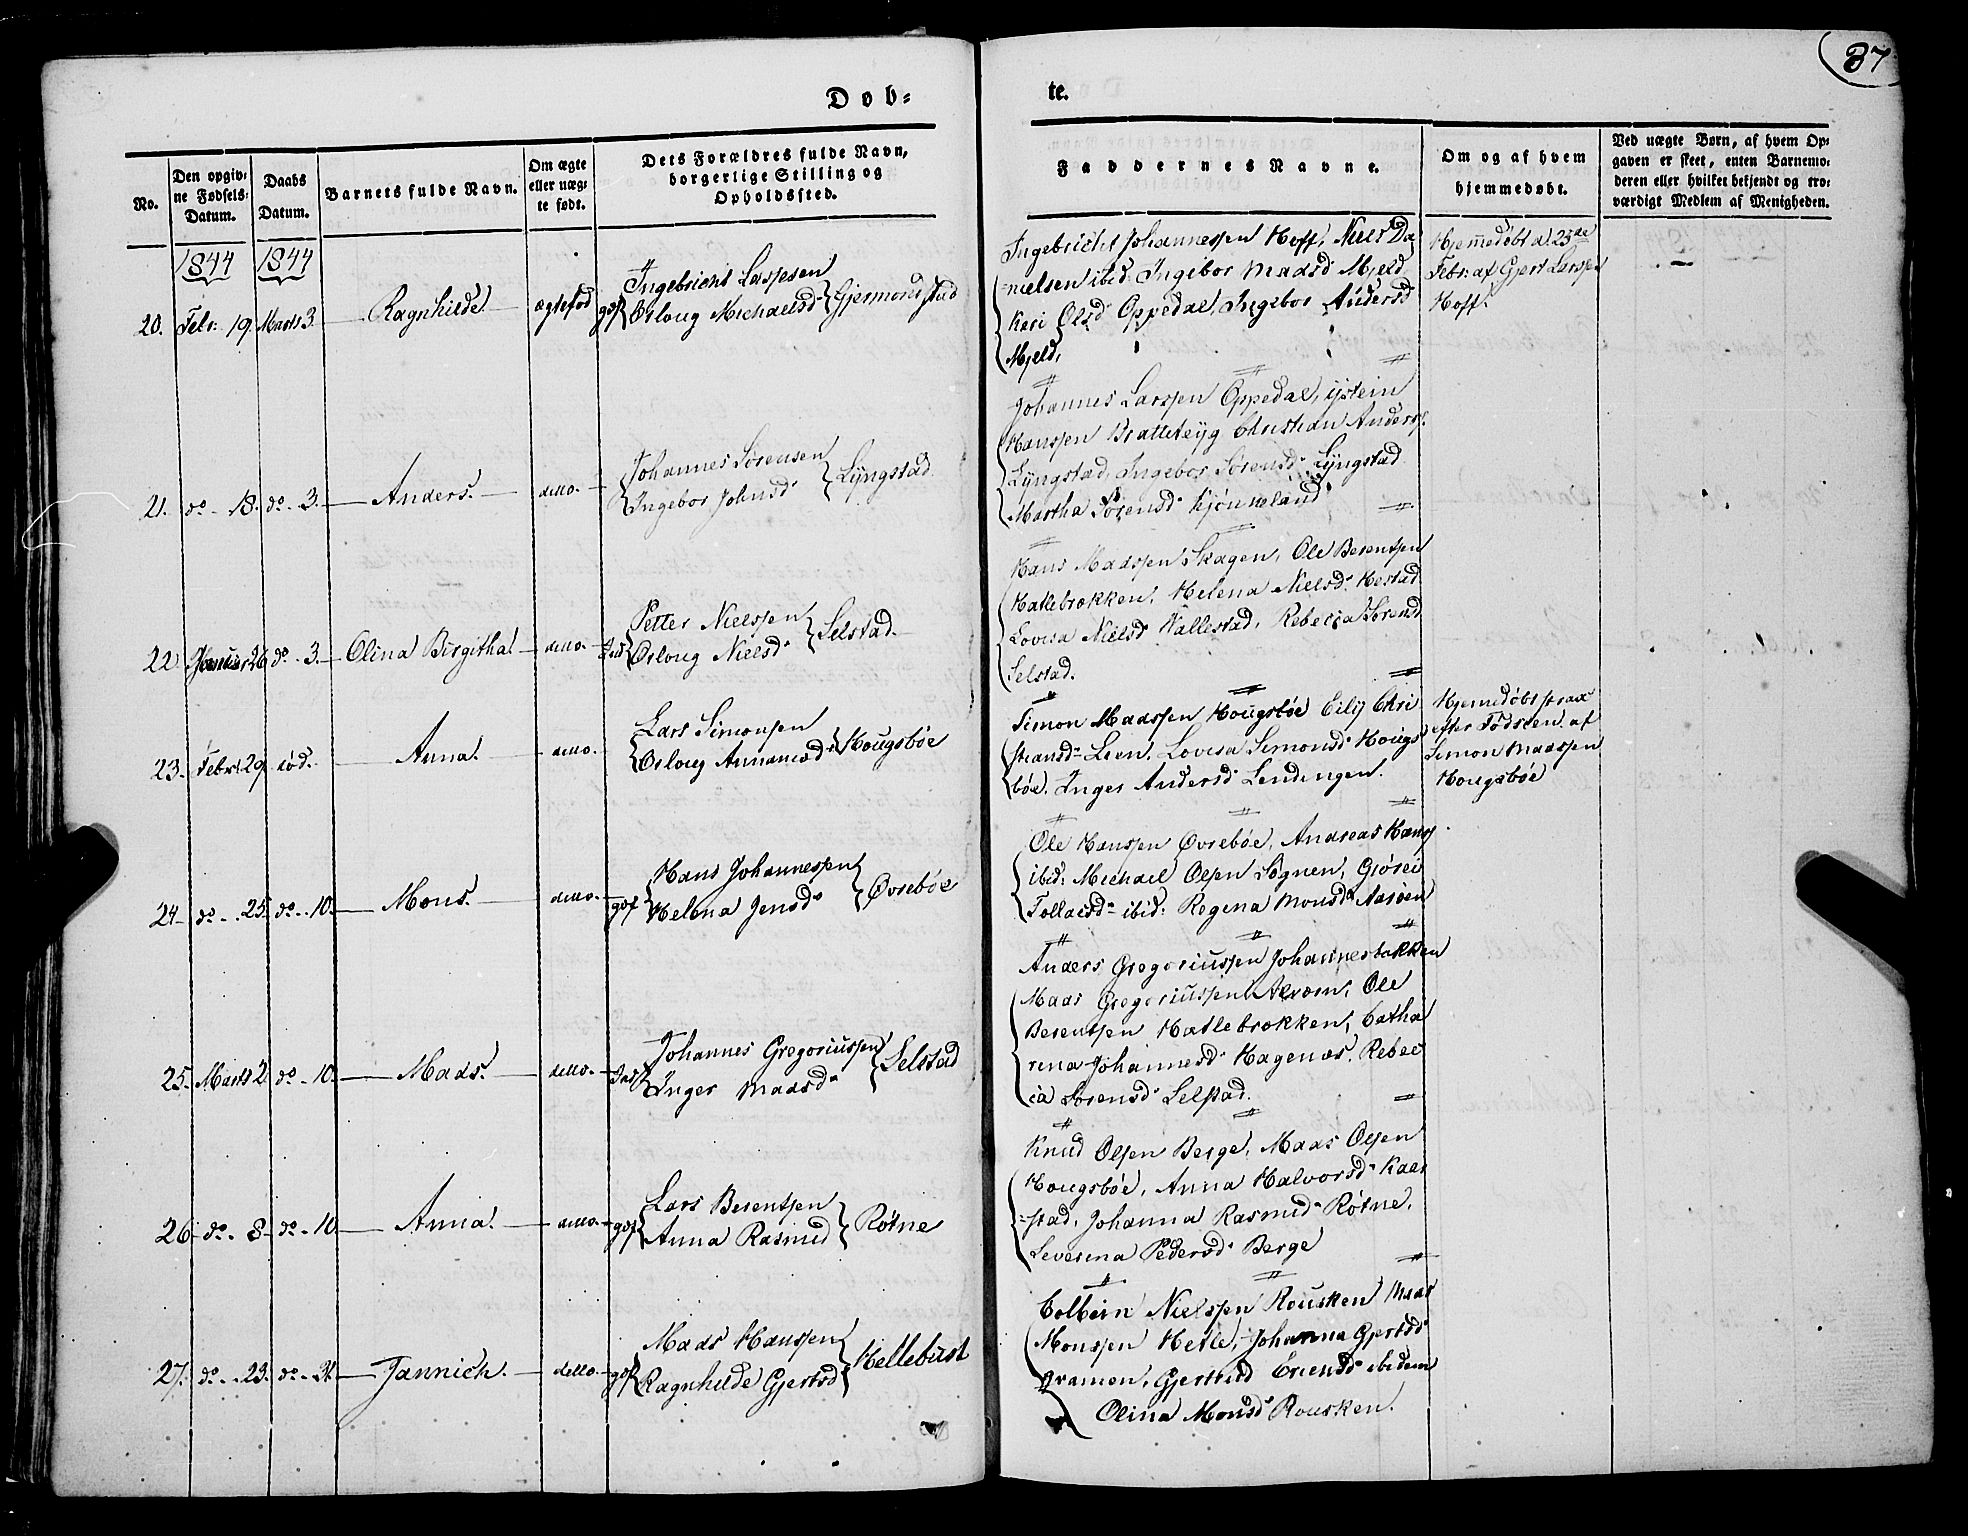 87
Døb-
te.
No.
Den opgiv-
ne Fødsels-
Datum.
Daabs
Datum.
Barnets fulde Navn.
Om ægte
eller uæg-
te født.
Dets Forældres fulde Navn,
borgerlige Stilling og
Opholdssted.
Faddernes Navne.
Om og af hvem
hjemmedøbt.
Ved uægte Børn, af hvem Op-
gaven er skeet, enten Barnemo-
deren eller hvilket bekjendt og tro-
værdigt Medlem af Menigheden.
1844 1844
20. Febr: 19. Marts 3. Ragnhilde ægtefød gaf
Ingebricht Larssen
Orloug Michaelsd Gjermonstad
Ingebricht Johannessen Hoff, Niels Da
nielsen ibid: Ingebor Maasd Mjeld,
Kari Olsd Oppedal, Ingebor Andersd
Mjeld,
Hjemmedøbt d. 23de
Febr: af Gjert Larssen
Hoff.
21. do - 18. do - 3. Anders. detto.
Johannes Sørensen
Ingebor Johnsd Lÿngstad
Johannes Larssen Oppedal, ÿstein
Hanssen Brattetejg Christian Anderss.
Lÿngstad, Ingebor Sørensd Lÿngstad
Martha Sørensd
22 Januar 26 do - 3. Olina Birgitha. detto.
Petter Nielssen
Orloug Nielsd Selstad.
Hans Maassen Skagen, Ole Berentsen
Hatlebrækken, Helena Nielsd Hestad
Lovisa Nielsd Vallestad, Rebecca Sørensd
Selstad.
23. Febr. 29. iød. Anna. detto.
Lars Simonsen
Orloug Hougsbøe
Simon Maassen Hougsbøe Eilij Chri
stiansd Leen, Lovisa Simonsd Hougs
bøe. Inger Andersd Lendingen.
Hjemedøbt strax
efter Fødslen af
Simon Maassen
Hougsbøe
24 do - 25. do - 10. Mons. detto. gaf
Hans Johannessen
Helena Jensd Øvrebøe
Ole Hanssen Øvrebøe, Andreas Hanss.
ibid: Michael Olsen Sognen, Gjørei
Tollacsd ibid: Regina Monsd Aasøen
25. Marts 2. do - 10. Maas. detto.
Johannes Gregoriussen
Inger Maasd Selstad
Anders Gregoriussen Johannesbakken
Maas Gregoriussen Aevom, Ole
Berentsen Hatlebrækken, Catha
rina Johannesd Hagenæs. Rebec
ca Sørensd Selstad.
26 do - 8 do - 10 Anna. detto. gaf
Lars Berentsen
Anna Rasmusd Røtne
Knud Olsen Berge, Maas Olsen
Hougsbøe, Anna Halvorsd Kaar
stad, Johanna Rasmusd Røtne,
Severina Pedersd Berge
27. do - 23. do - 31. Jannich. detto. gaf
Maas Hanssen
Ragnhilde Gjertsd Hellebust
Colbein Nielssen Rousken Maas
Monssen Hetle, Johanna Gjertsd
Gjertrud Eriensd ibidem
Olina Monsd Rousken.